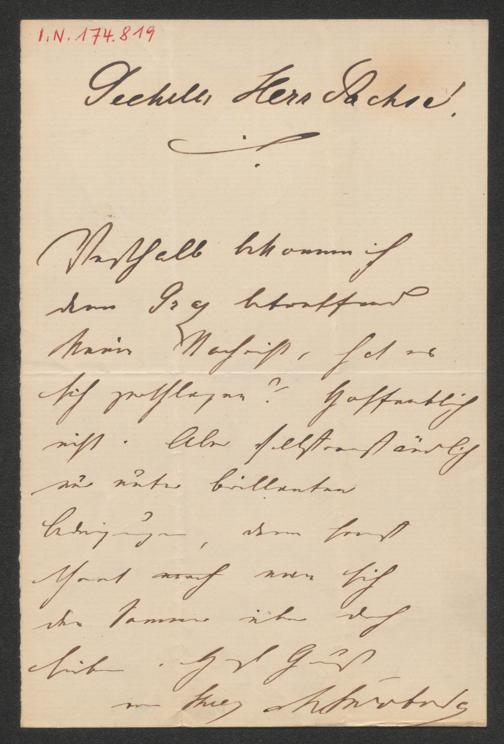 I.N. 174.819
Geehrter Herr Sachse!
Weshalb bekomme ich
denn Graz betreffend
keine Nachricht, hat es
sich zerschlagen? Hoffentlich
nicht. Aber selbstverständlich
nur unter brillanten
Bedingungen, denn sonst
man sich
den Sommer über doch
lieber. Gruß